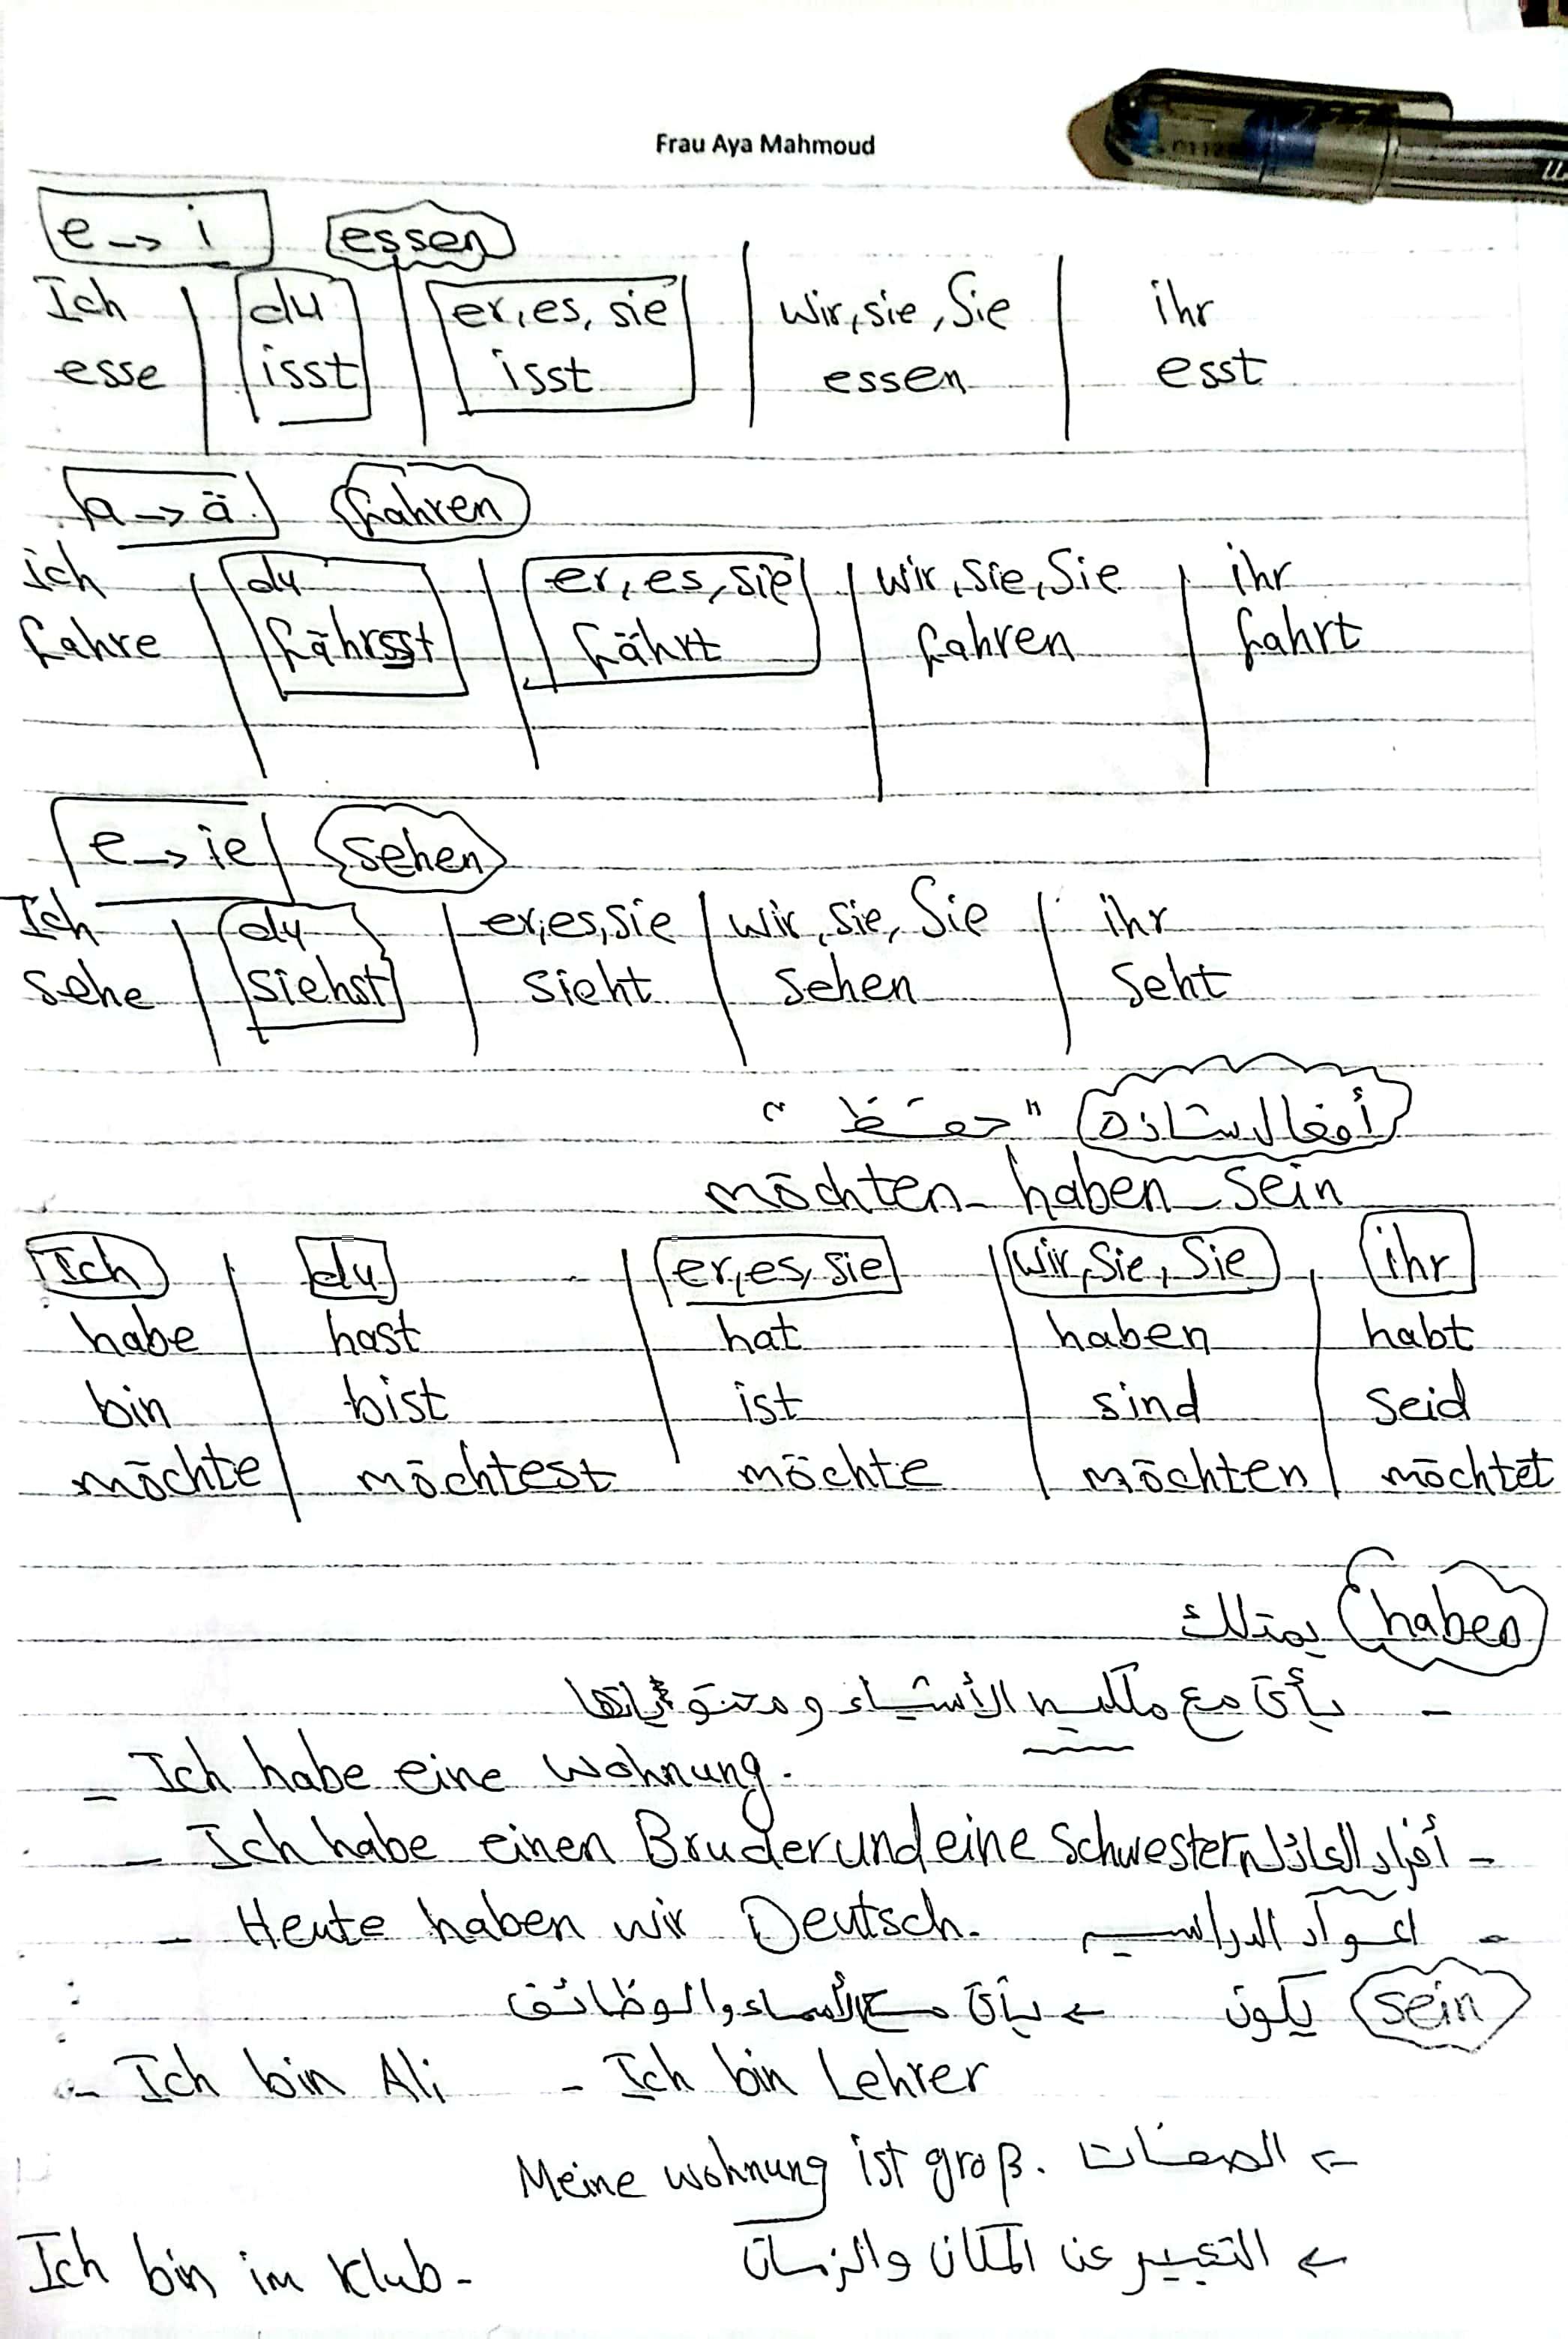 Frau Aya Mahmoud
e → i essen
Ich du er, es, sie wir, sie, Sie ihr
esse isst isst essen esst
a → ä fahren
ich du er, es, sie wir, sie, Sie ihr
fahre fährst fährt fahren fahrt
e → ie sehen
Ich du er, es, sie wir, sie, Sie ihr
sehe siehst sieht sehen seht
أفعال شاذه "حفظ"
möchten - haben - sein
Ich du er, es, sie wir, sie, Sie ihr
habe hast hat haben habt
bin bist ist sind seid
möchte möchtest möchte möchten möchtet
haben يمتلك
- يأتى مع ملكيه الأشياء ومحتوياتها
= Ich habe eine Wohnung.
- Ich habe einen Bruder und eine Schwester - أفراد العائله
- Heute haben wir Deutsch. - المواد الدراسيه
sein يكون ← يأتى مع الأسماء والوظائف
- Ich bin Ali - Ich bin Lehrer
← الصفات Meine wohnung ist groß.
← التعبير عن المكان والزمان
Ich bin im Klub-